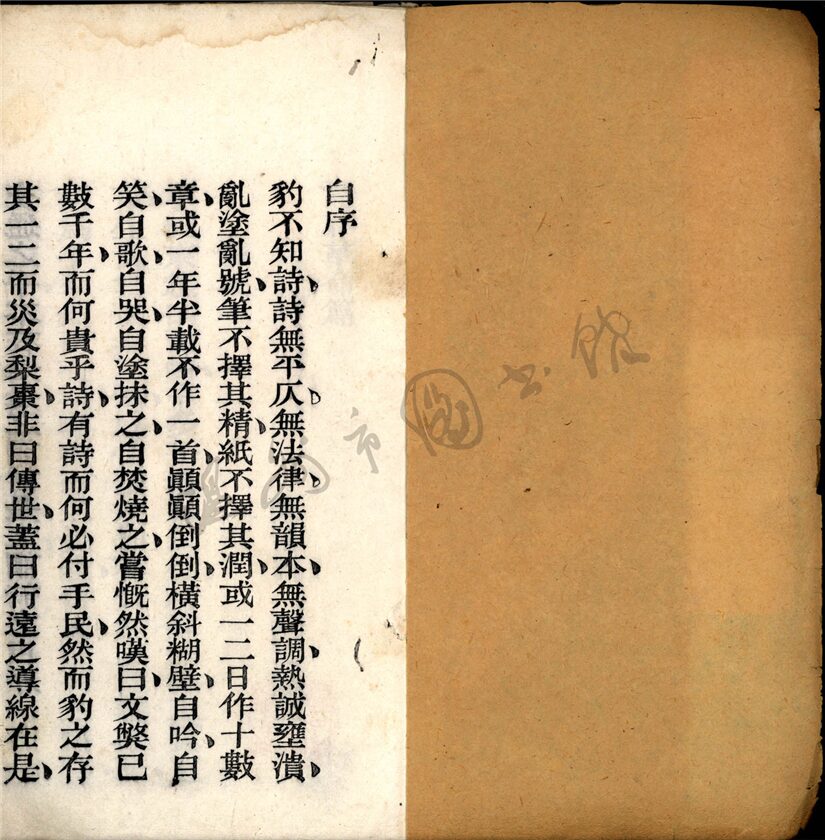 自序
豹不知詩詩無平仄無法律無韻本無聲調熱誠壅潰
亂塗亂號筆不擇其精紙不擇其潤或一二日作十數
章或一年半載不作一首顚顚倒倒橫斜糊壁自吟自
笑自歌自哭自塗抹之自焚燒之嘗慨然嘆曰文獘已
數千年而何貴乎詩有詩而何必付手民然而豹之存
其一二而災及梨棗非曰傳世蓋曰行遠之導線在是
市圖书馆